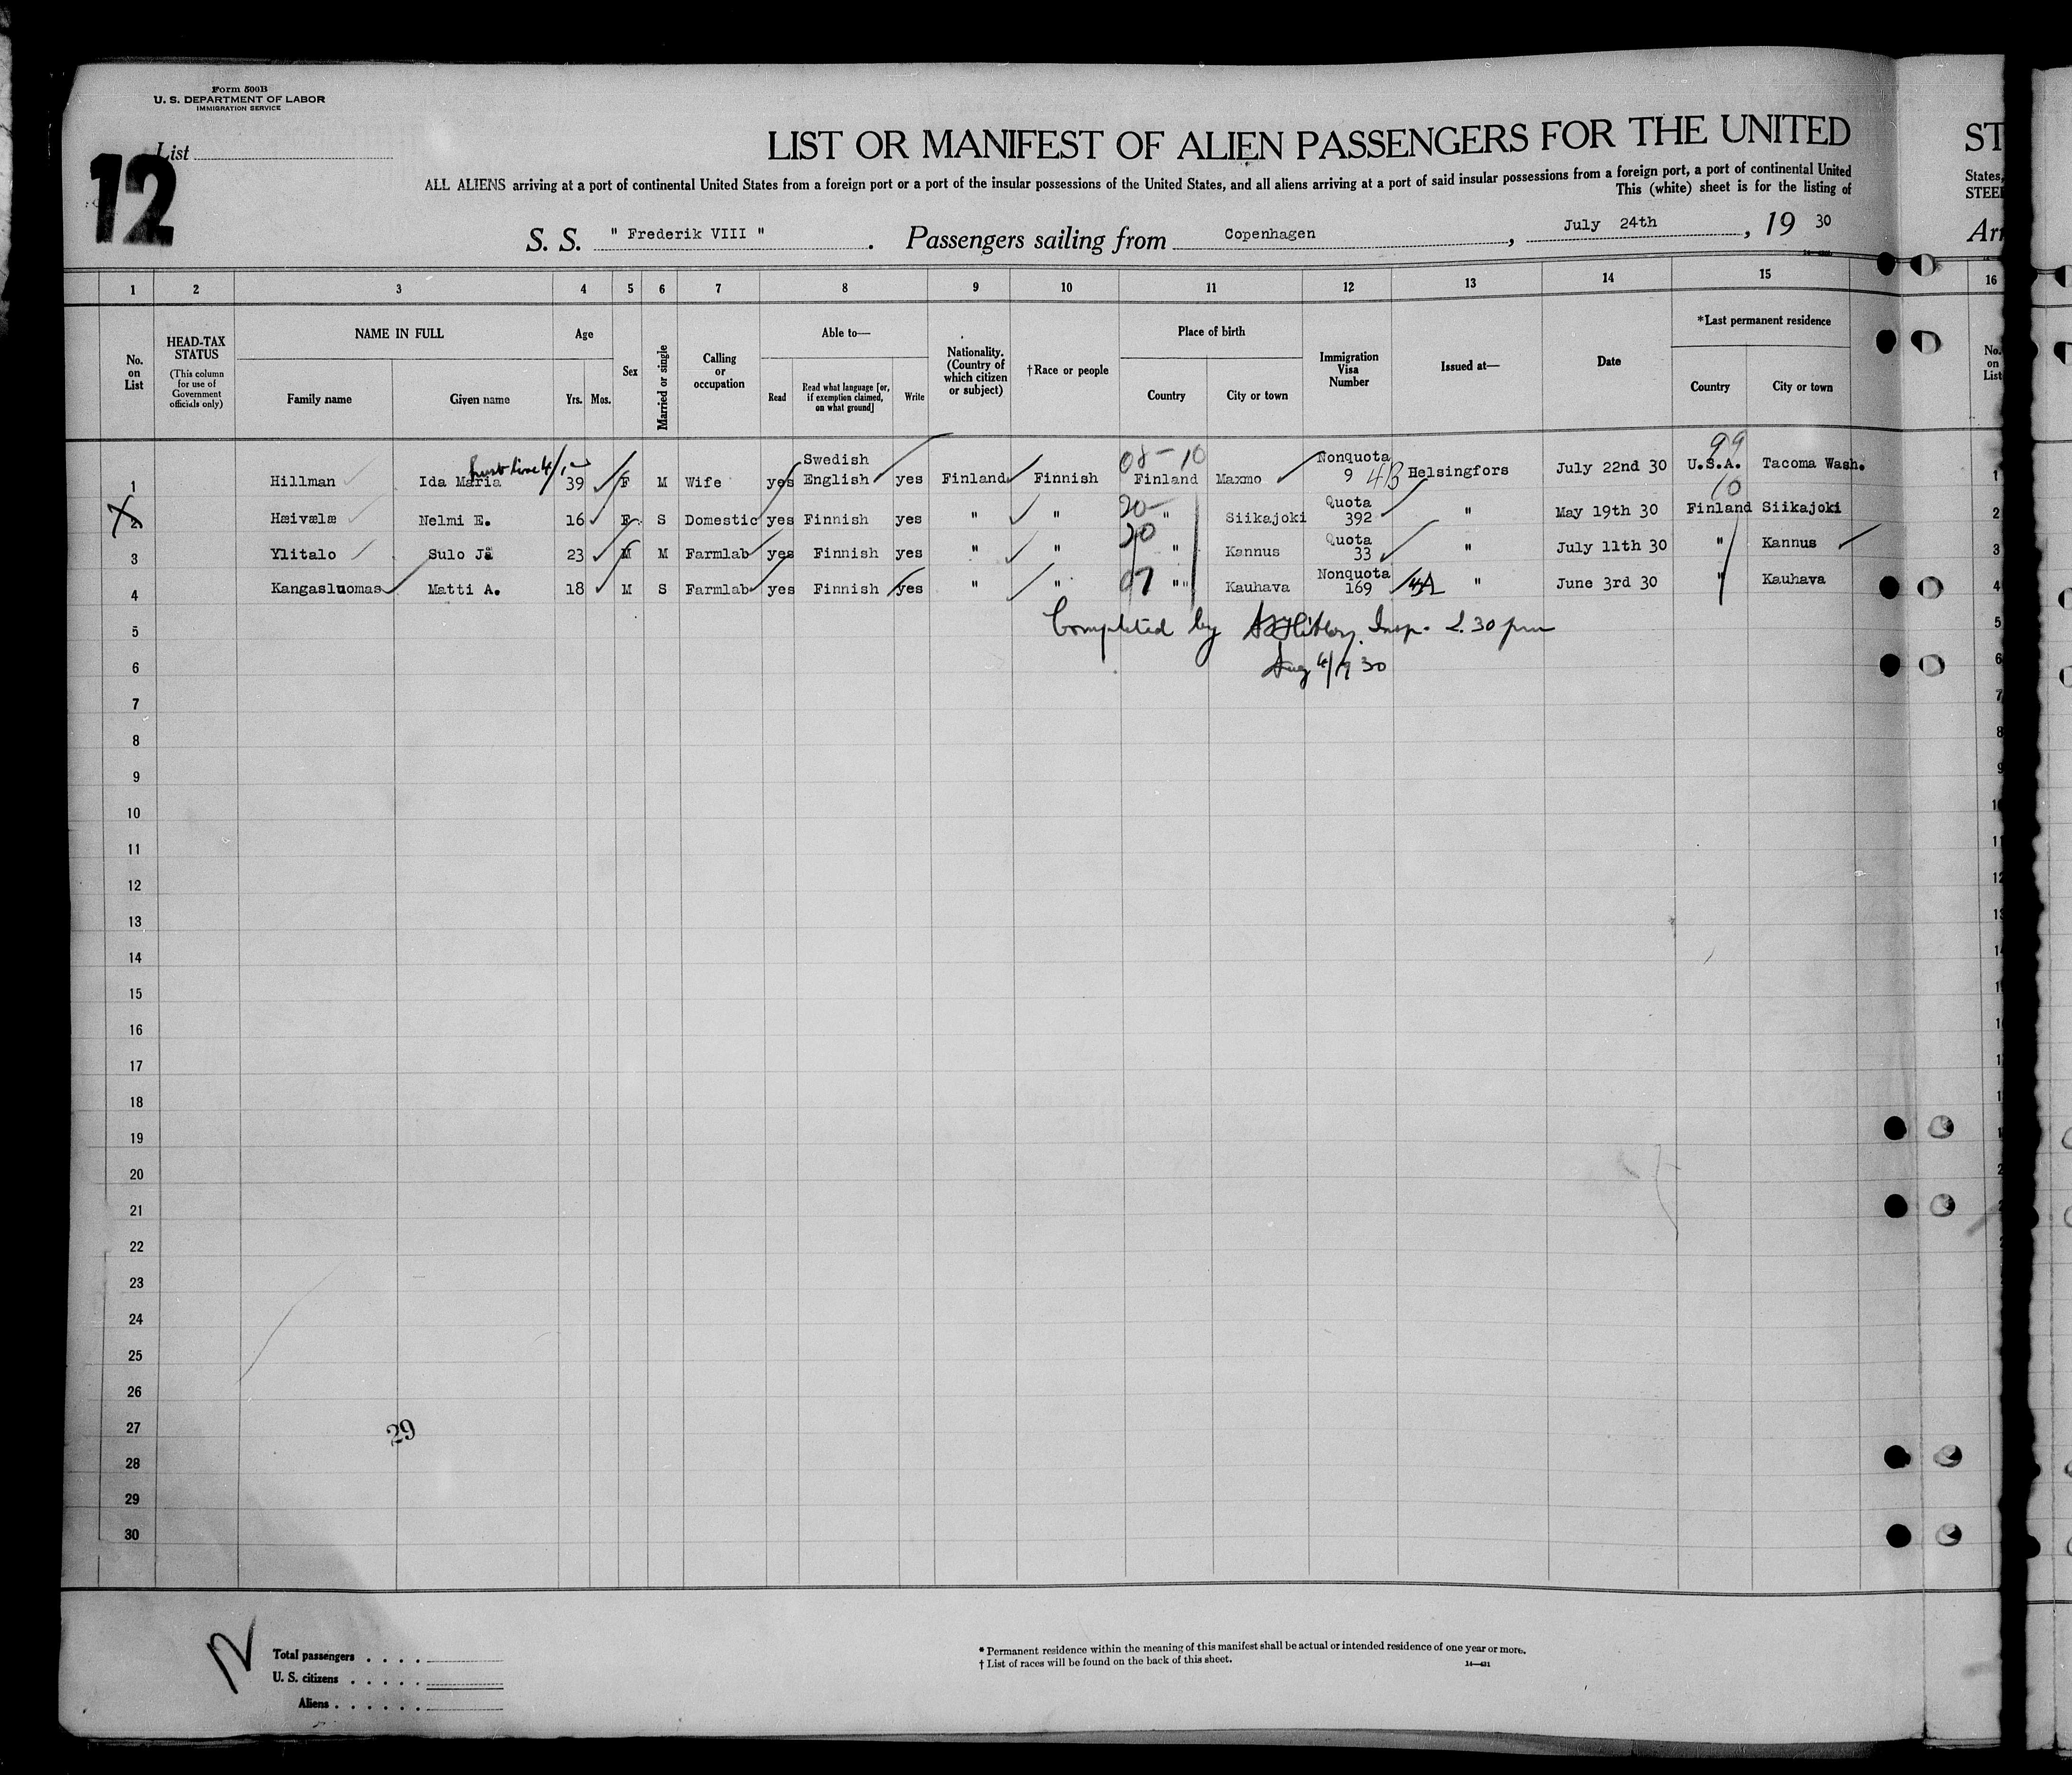 Form 500B
U. S. DEPARTMENT OF LABOR
IMMIGRATION SERVICE
List
12
LIST OR MANIFEST OF ALIEN PASSENGERS FOR THE UNITED
ALL ALIENS arriving at a port of continental United States from a foreign port or a port of the insular possessions of the United States, and all aliens arriving at a port of said insular possessions from a foreign port, a port of continental United
This (white) sheet is for the listing of
S. S. " Frederik VIII " . Passengers sailing from Copenhagen , July 24th , 19 30
ST
States,
STEE
Arr
1 2 3 4 5 6 7 8 9 10 11 12 13 14 15 16
No. on List
HEAD-TAX STATUS
(This column for use of Government officials only)
NAME IN FULL
Family name Given name
Age
Yrs. Mos.
Sex
Married or single
Calling or occupation
Able to—
Read
Read what language [or, if exemption claimed, on what ground]
Write
Nationality. (Country of which citizen or subject)
†Race or people
Place of birth
Country City or town
Immigration Visa Number
Issued at—
Date
*Last permanent residence
Country City or town
No. on List
1 Hillman Ida Maria 39 F M Wife yes Swedish English yes Finland Finnish 08-10 Finland Maxmo Nonquota 9 4B Helsingfors July 22nd 30 99 U.S.A. Tacoma Wash. 1
2 Hæivælæ Nelmi E. 16 F S Domestic yes Finnish yes " " 20- " Siikajoki Quota 392 " May 19th 30 10 Finland Siikajoki 2
3 Ylitalo Sulo J. 23 M M Farmlab yes Finnish yes " " 20 " Kannus Quota 33 " July 11th 30 " Kannus 3
4 Kangasluomas Matti A. 18 M S Farmlab yes Finnish yes " " 07 " " Kauhava Nonquota 169 4A " June 3rd 30 " Kauhava 4
Completed by Insp. 2.30 pm
Aug 4/1930
5
6
7
8
9
10
11
12
13
14
15
16
17
18
19
20
21
22
23
24
25
26
27
29
28
29
30
Total passengers . . . .
U. S. citizens . . . . .
Aliens . . . . . .
* Permanent residence within the meaning of this manifest shall be actual or intended residence of one year or more.
† List of races will be found on the back of this sheet.